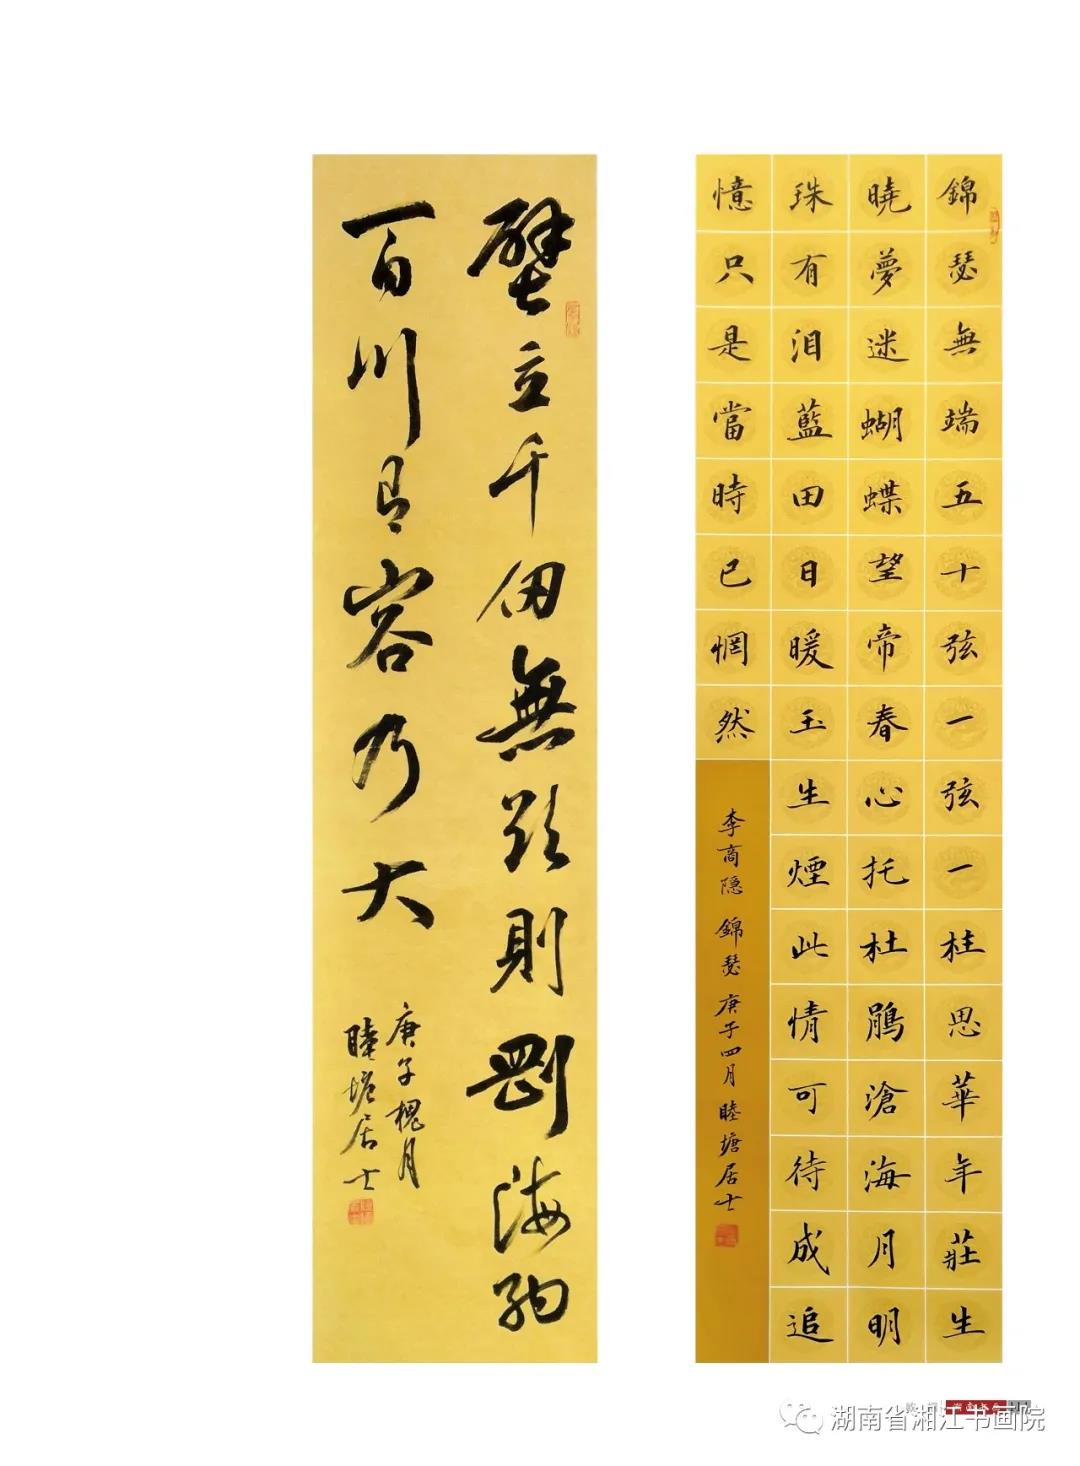 錦瑟無端五十弦一弦一桂思華年莊生
曉夢迷蝴蝶望帝春心托杜鵑滄海月明
珠有泪藍田日暖玉生煙此情可待成追
憶只是當時已惘然
李商隐 錦瑟 庚子四月 睦塘居士
壁立千仞無欲則剛海納
百川有容乃大
庚子槐月
睦塘居士
湖南省湘江书画院